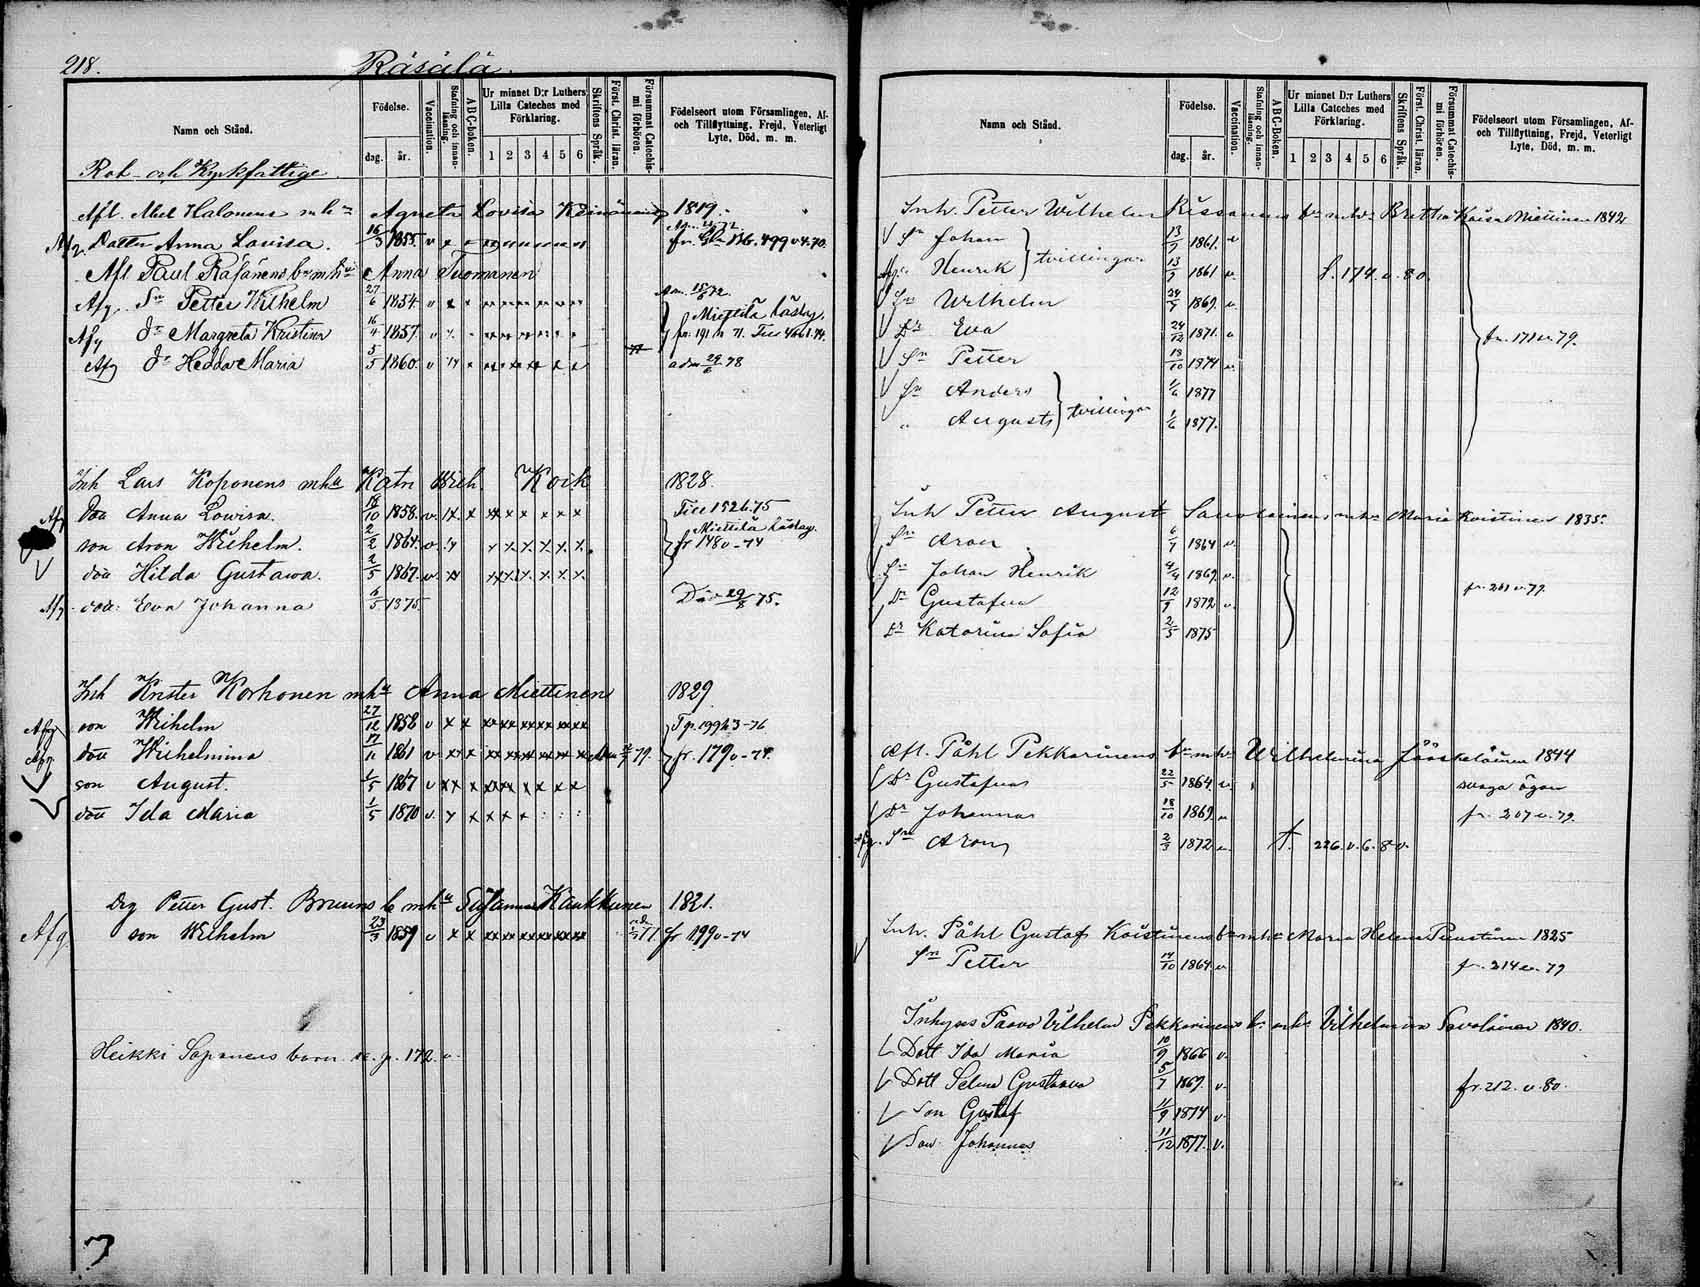 218. Räsälä.
Namn och Stånd.
Födelse.
dag. år.
Vaccination.
Stafning och innanläsning.
A B C-Boken.
Ur minnet D:r Luthers Lilla Cateches med Förklaring.
1 2 3 4 5 6
Skriftens Språk.
Först. Christ. läran.
Försummat Catechismi förhören.
Födelseort utom Församlingen, Af- och Tillflyttning, Frejd, Veterligt Lyte, Död, m. m.
Rot- och Kyrkfattige.
Afl. Abel Halonens mha Agneta Lovisa 1819.
Dotter Anna Lovisa. 16/3 1855. v fr. 499 v. 70.
Afl Paul Räsänens b. mha Anna Tuomanen
Afg. Sn Petter Wilhelm 27/6 1854 v 15/8 72.
Miettilä läslag.
Afg Dr Margreta Kristina 16/4 1857. v fr. 191 71.
Afg Dr Hedda Maria 5/5 1860. v adm 29/6 78
Inh Lars Koponens mha Katr. Wilh. Koik 1828.
Afg Dott Anna Lowisa. 18/10 1858. v. Till 152 b. 75
son Aron Wilhelm. 2/2 1864. v. Miettilä läslag. fr 148 v-74
dott Hilda Gustawa. 2/5 1867. v.
Afg dott Eva Johanna 6/5 1875 Död 29/8 75.
Inh Krister Korhonen mha Anna Miettinen 1829
Afg son Wilhelm 27/12 1858 v 199 -76
Afg dott Wilhelmina 17/11 1861 v 79. fr. 179 v-74.
son August. 1/5 1867 v
dott Ida Maria 1/5 1870 v.
Drg Petter Gust. Bruuns b mha Susanna Kaukkunen 1821.
Afg son Wilhelm 23/3 1859 v 77 fr 199 v-74
Heikki Soponens barn se. p. 172. v.
Namn och Stånd.
Födelse.
dag. år.
Vaccination.
Stafning och innanläsning.
A B C-Boken.
Ur minnet D:r Luthers Lilla Cateches med Förklaring.
1 2 3 4 5 6
Skriftens Språk.
Först. Christ. läran.
Försummat Catechismi förhören.
Födelseort utom Församlingen, Af- och Tillflyttning, Frejd, Veterligt Lyte, Död, m. m.
Inh. Petter Wilhelm Rissanens b. mha Britta Kaisa Miettinen 1842
Sn Johan 13/9 1861. v
tvillingar
Afg. " Henrik 13/9 1861 v. f. 174. v. 80.
Sn Wilhelm 24/9 1869. v.
Dr Eva 24/12 1871. v fr. 171 v. 79.
Sn Petter 18/10 1874 v.
Sn Anders 1/6 1877
tvillingar
" August 1/6 1877.
Inh Petter August Savolainens mha Maria Koistinen 1835.
Sn Aron 6/7 1864 v.
Sn Johan Henrik 4/4 1869. v.
Dr Gustafva 12/9 1872 v. fr. 201 v. 79.
Dr Katarina Sofia 2/5 1875
Afl. Påhl Pekkarinens b. mha Wilhelmina Jääskeläinen 1844
Dr Gustafva 22/5 1864. v. svaga ögon
Dr Johanna 18/10 1869. v fr. 207 v. 79.
Afg. Sn Aron 2/3 1872 v. f. 226. v. 6. 8 v.
Inh. Påhl Gustaf Koistinens b. mha Maria Helena Puustinen 1825
Sn Petter 14/10 1864. v. fr. 214 v. 79
Inhyses Paavo Vilhelm Pekkarinens b. mha Vilhelmina Savolainen 1840.
Dott Ida Maria 10/9 1866 v.
Dott Selma Gustava 5/7 1869. v. fr. 212. v. 80.
Son Gustaf 11/9 1874 v.
Son Johannes 11/12 1877. v.